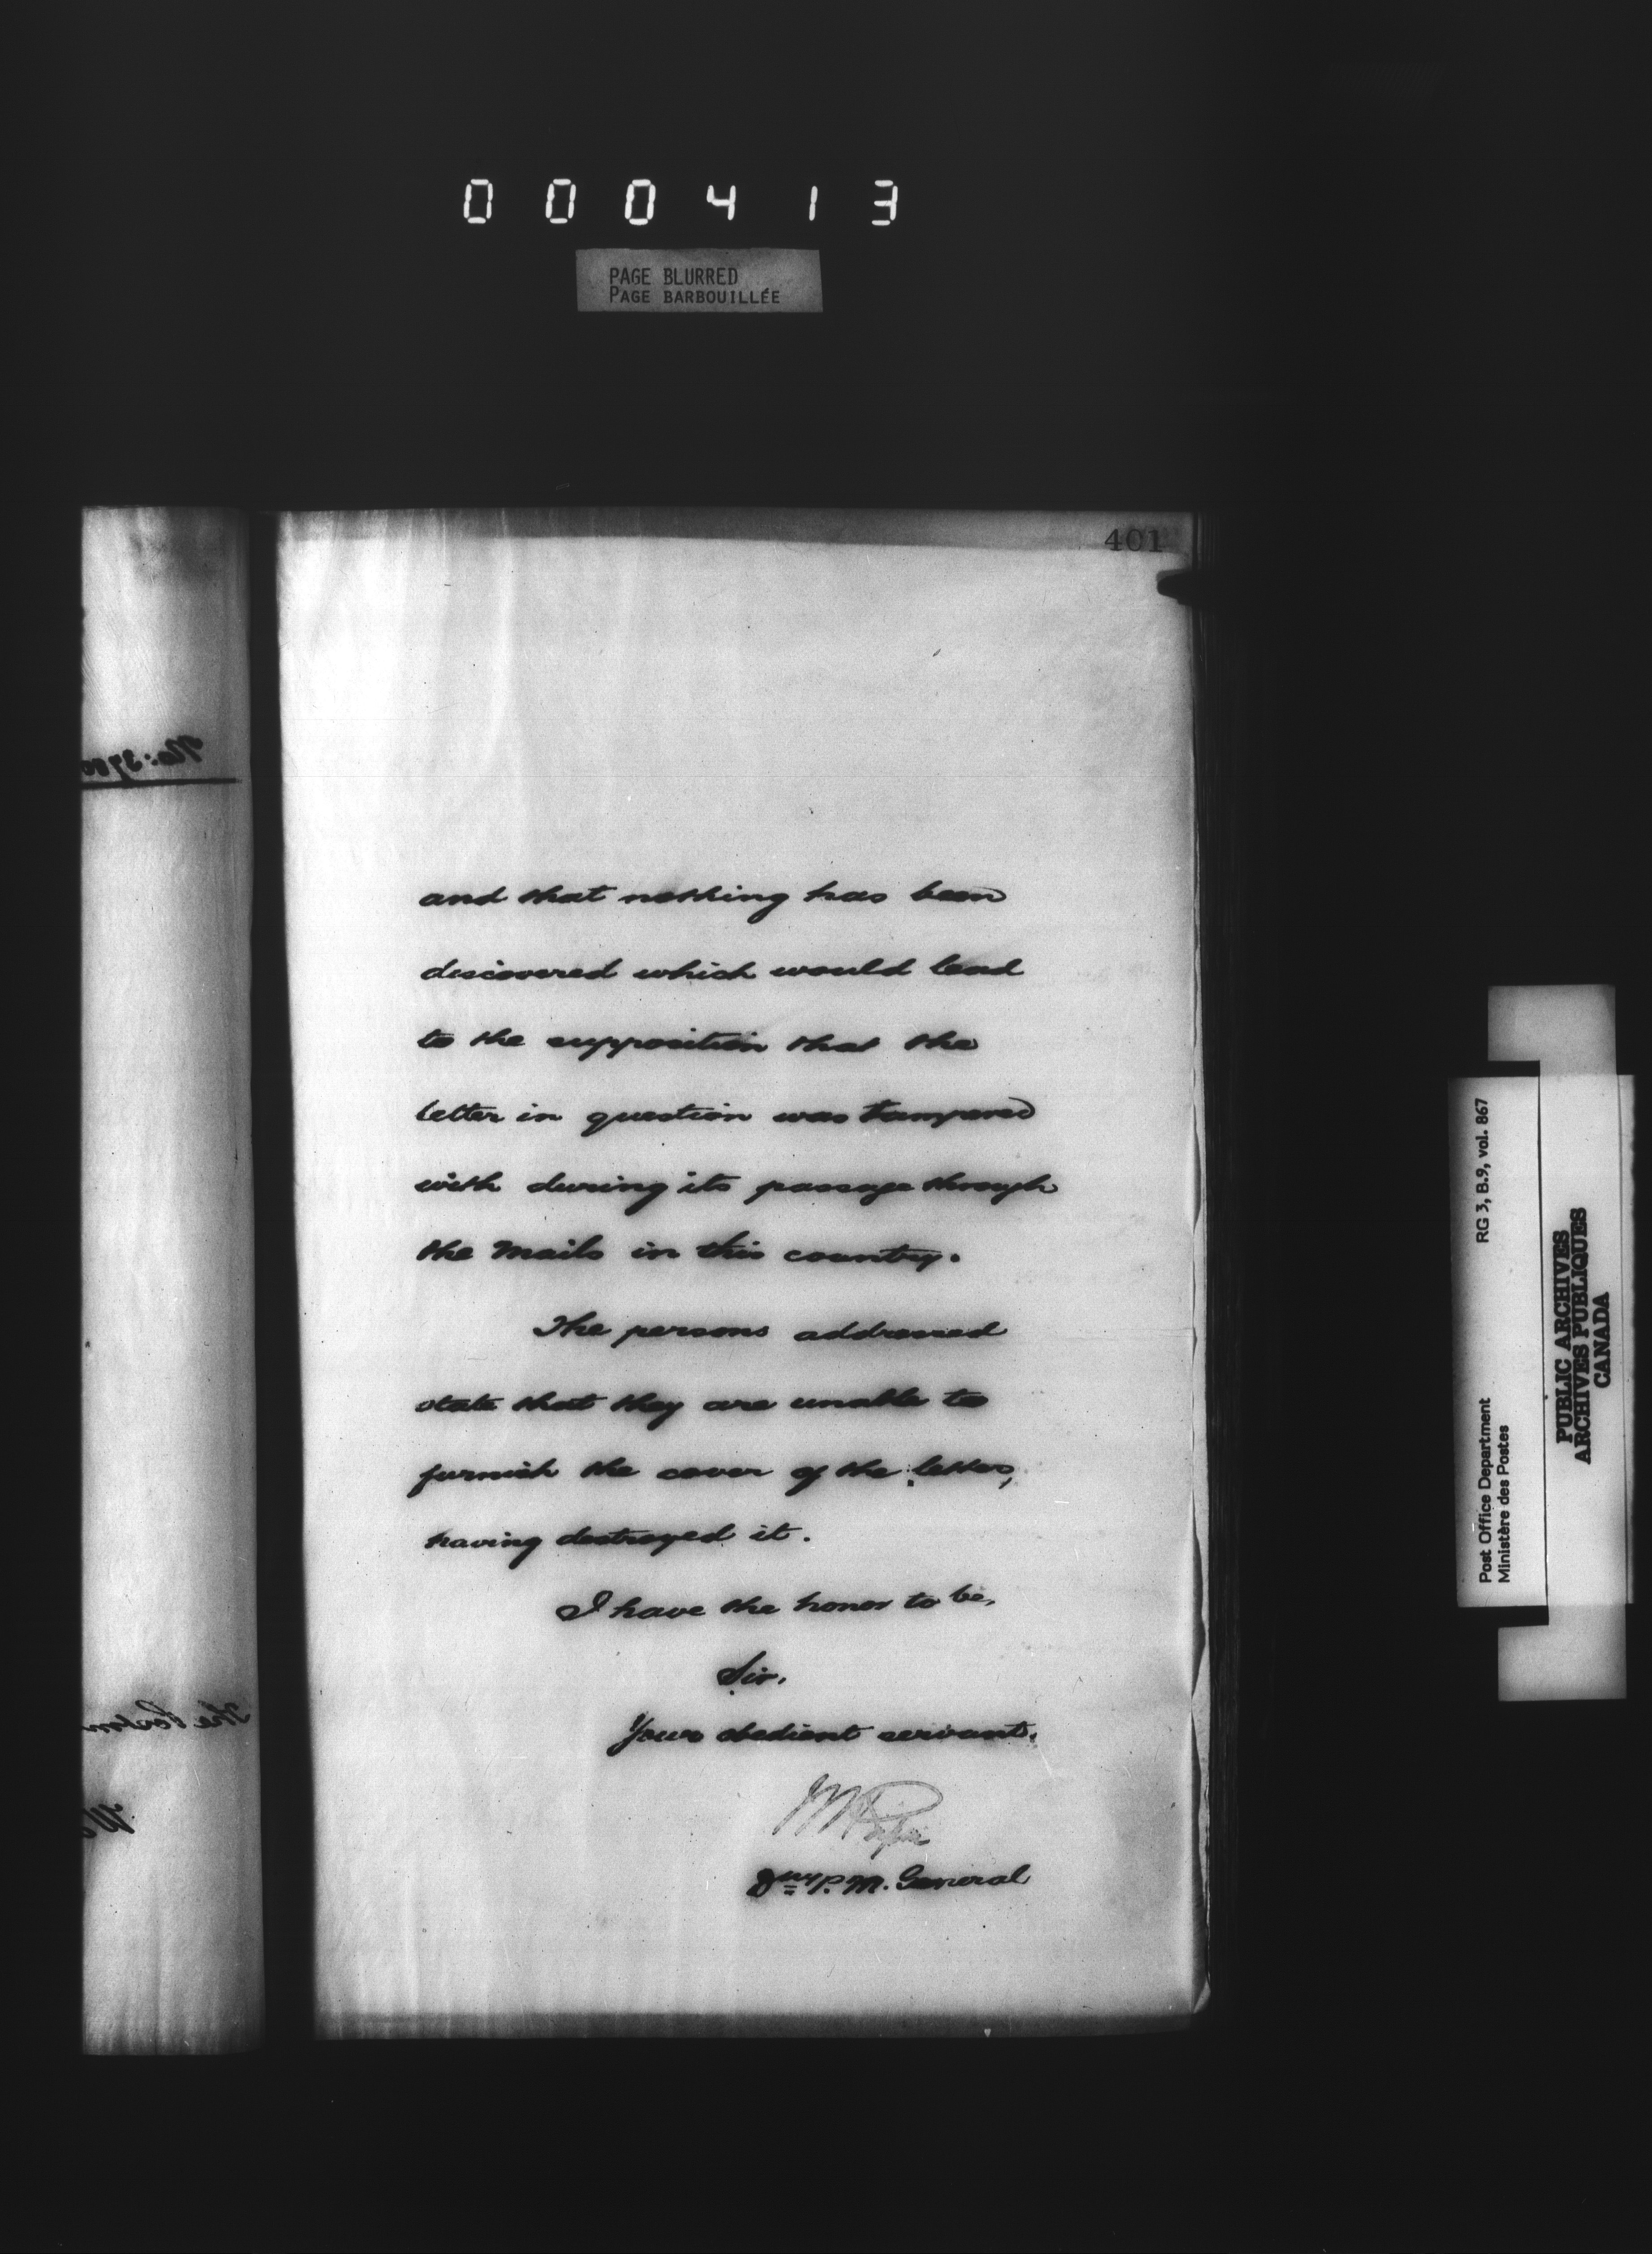 000413
PAGE BLURRED
PAGE BARBOUILLÉE
401
No: 370
The Postm
and that nothing has been
discovered which would lead
to the supposition that the
letter in question was tampered
with during its passage through
the Mails in this country.
The persons addressed
state that they are unable to
furnish the cover of the letter,
having destroyed it.
I have the honor to be,
Sir,
Your obedient servant.
P. M. General
Post Office Department
Ministère des Postes
RG 3, B.9, vol. 867
PUBLIC ARCHIVES
ARCHIVES PUBLIQUES
CANADA